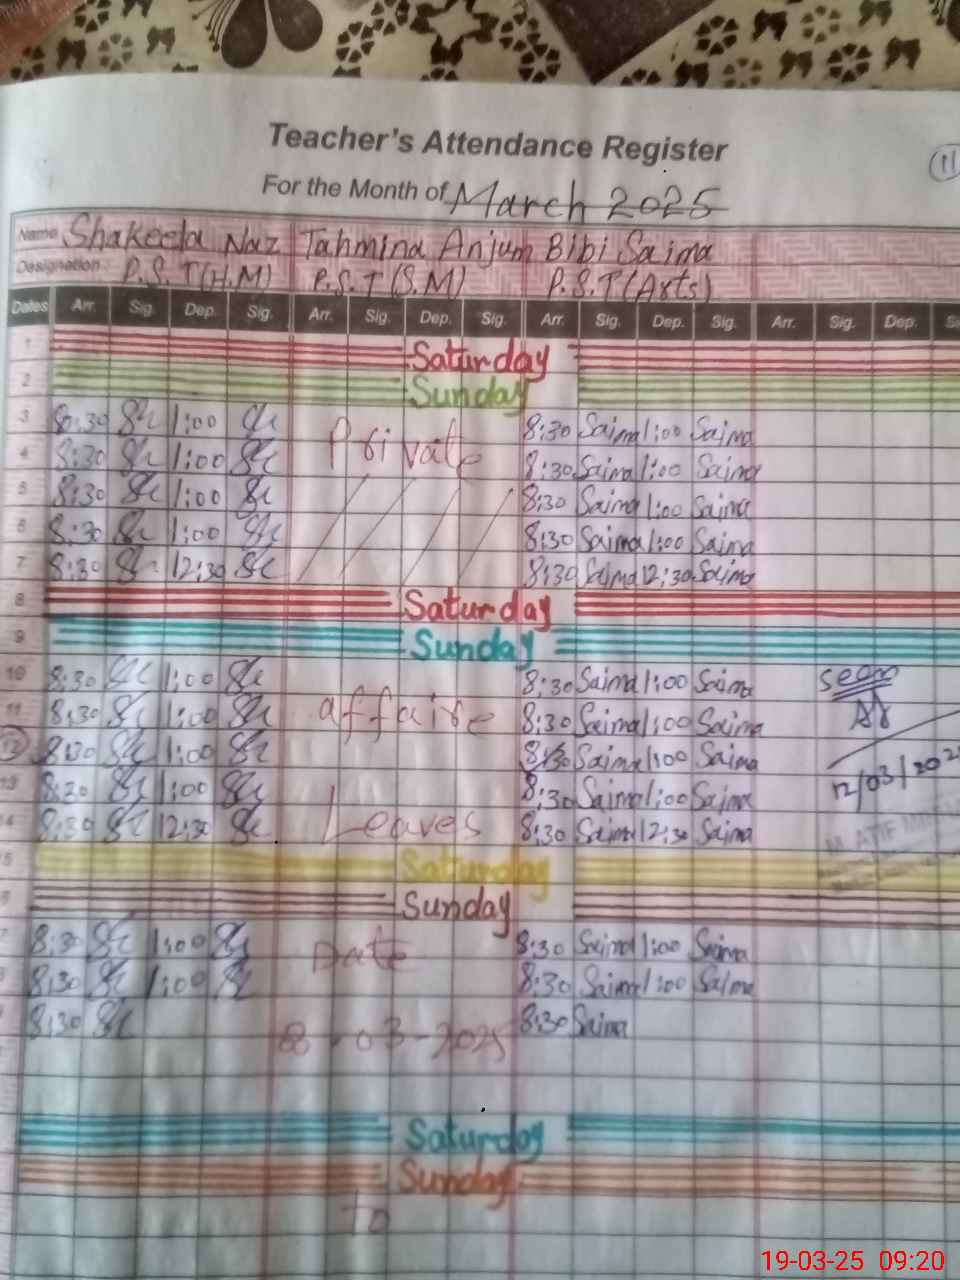 Teacher's Attendance Register
11
For the Month of March 2025
Name Shakeela Naz Tahmina Anjum Bibi Saima
Designation: P.S.T(H.M) P.S.T(S.M) P.S.T(Arts)
Dates Arr. Sig. Dep. Sig. Arr. Sig. Dep. Sig. Arr. Sig. Dep. Sig. Arr. Sig. Dep.
1 Saturday
2 Sunday
3 8:30 1:00 Private 8:30 Saima 1:00 Saima
4 8:30 1:00 8:30 Saima 1:00 Saima
5 8:30 1:00 8:30 Saima 1:00 Saima
6 8:30 1:00 8:30 Saima 1:00 Saima
7 8:30 12:30 8:30 Saima 12:30 Saima
8 Saturday
9 Sunday
10 8:30 1:00 8:30 Saima 1:00 Saima seen
11 8:30 1:00 affaire 8:30 Saima 1:00 Saima
12 8:30 1:00 8:30 Saima 1:00 Saima
13 8:30 1:00 8:30 Saima 1:00 Saima 12/03/202
14 8:30 12:30 Leaves 8:30 Saima 12:30 Saima
M. ATIF
Saturday
Sunday
8:30 1:00 Date 8:30 Saima 1:00 Saima
8:30 1:00 8:30 Saima 1:00 Saima
8:30 8-03-2025 8:30 Saima
Saturday
Sunday
To
19-03-25 09:20